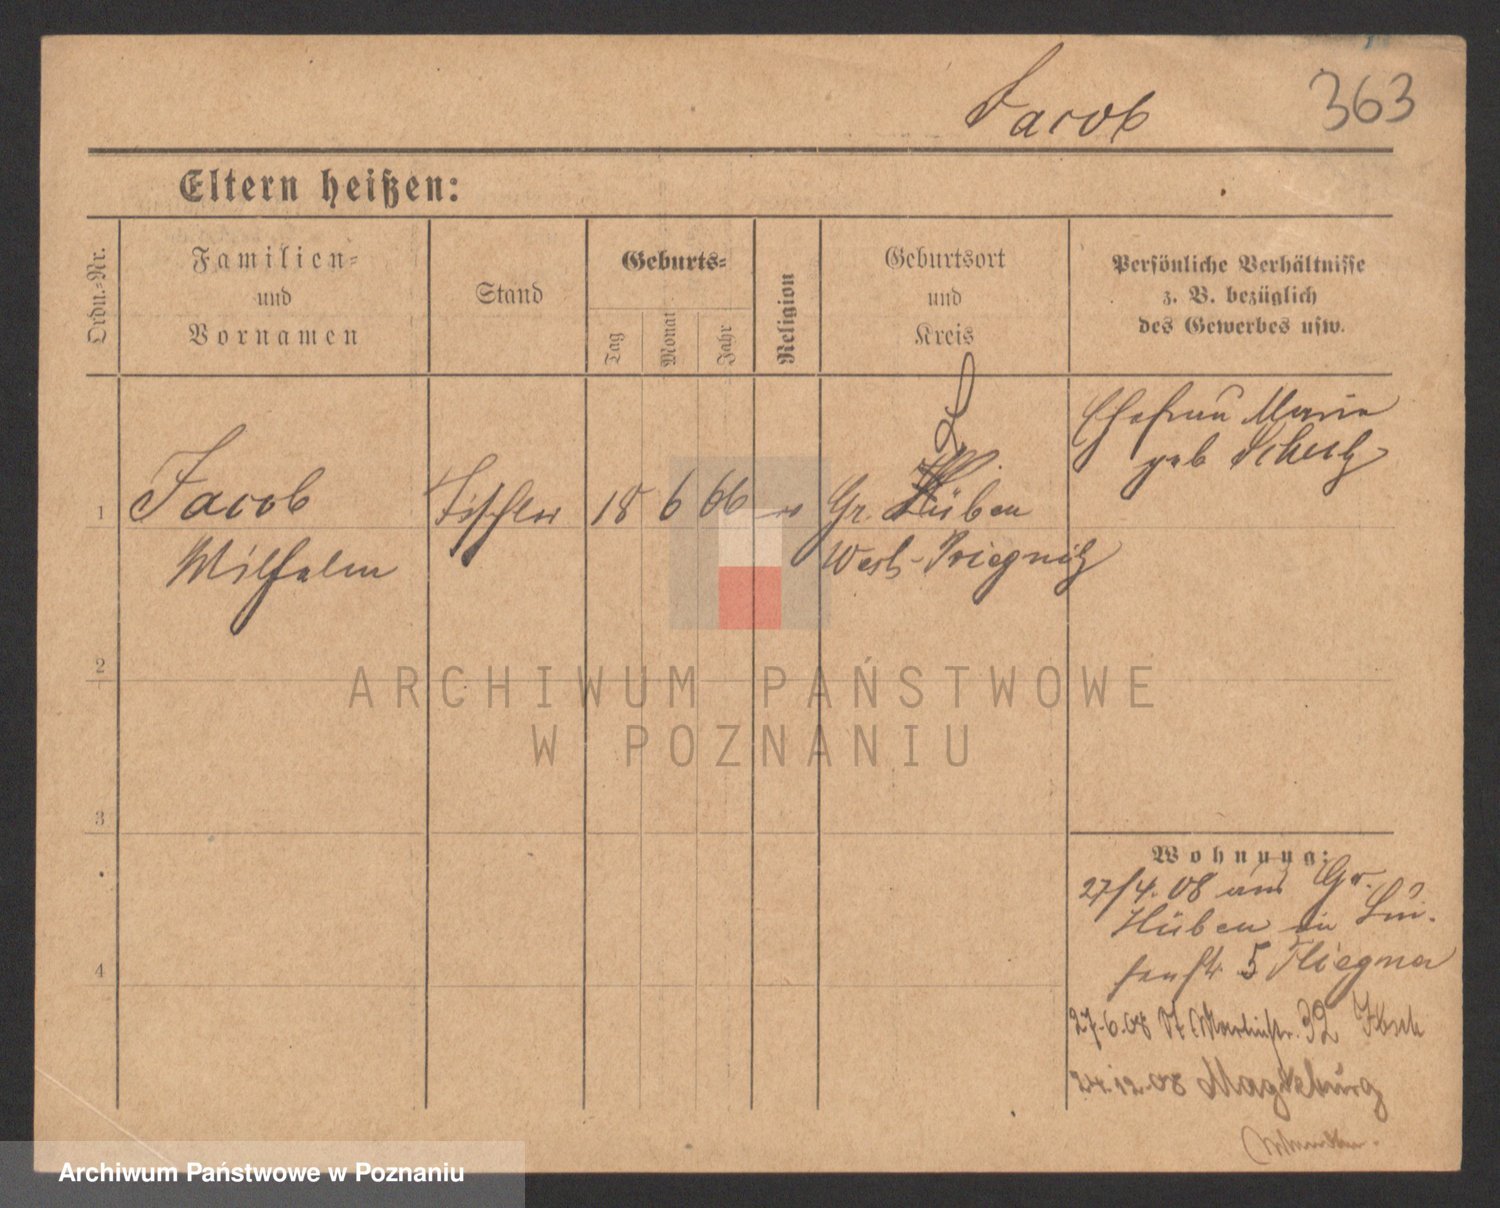 Jacob 363
Eltern heißen:
Ordn.-Nr.
Familien-
und
Vornamen
Stand
Geburts-
Tag
Monat
Jahr
Religion
Geburtsort
und
Kreis
Persönliche Verhältnisse
z. B. bezüglich
des Gewerbes usw.
Ehefrau Marie
geb
1 Jacob Tischler 18 6 66 Gr. Lüben
Wilhelm West-Priegnitz
2
ARCHIWUM PAŃSTWOWE
W POZNANIU
3
Wohnung:
27/4. 08 aus Gr.
Lüben in Lui-
senstr 5
4
27.6.08 St Martinstr. 32
24.12.08 Magdeburg
Archiwum Państwowe w Poznaniu